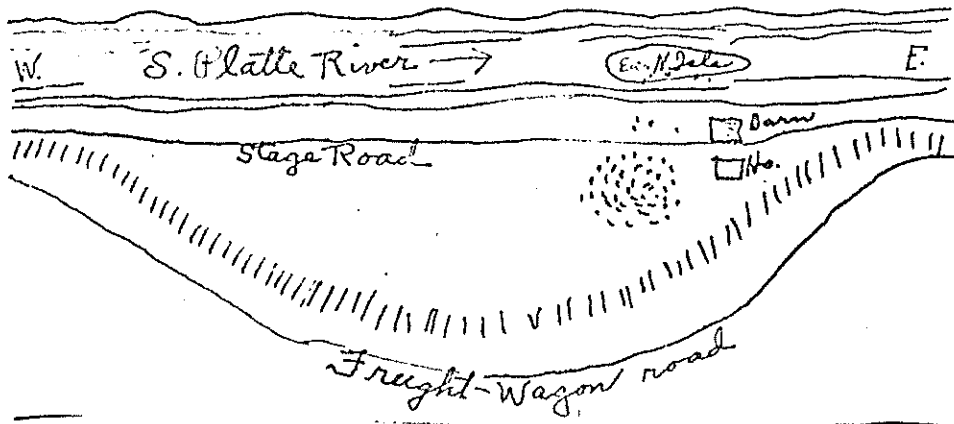 W. S. Platte River E.
Barn
Stage Road
Ho.
Freight-Wagon road